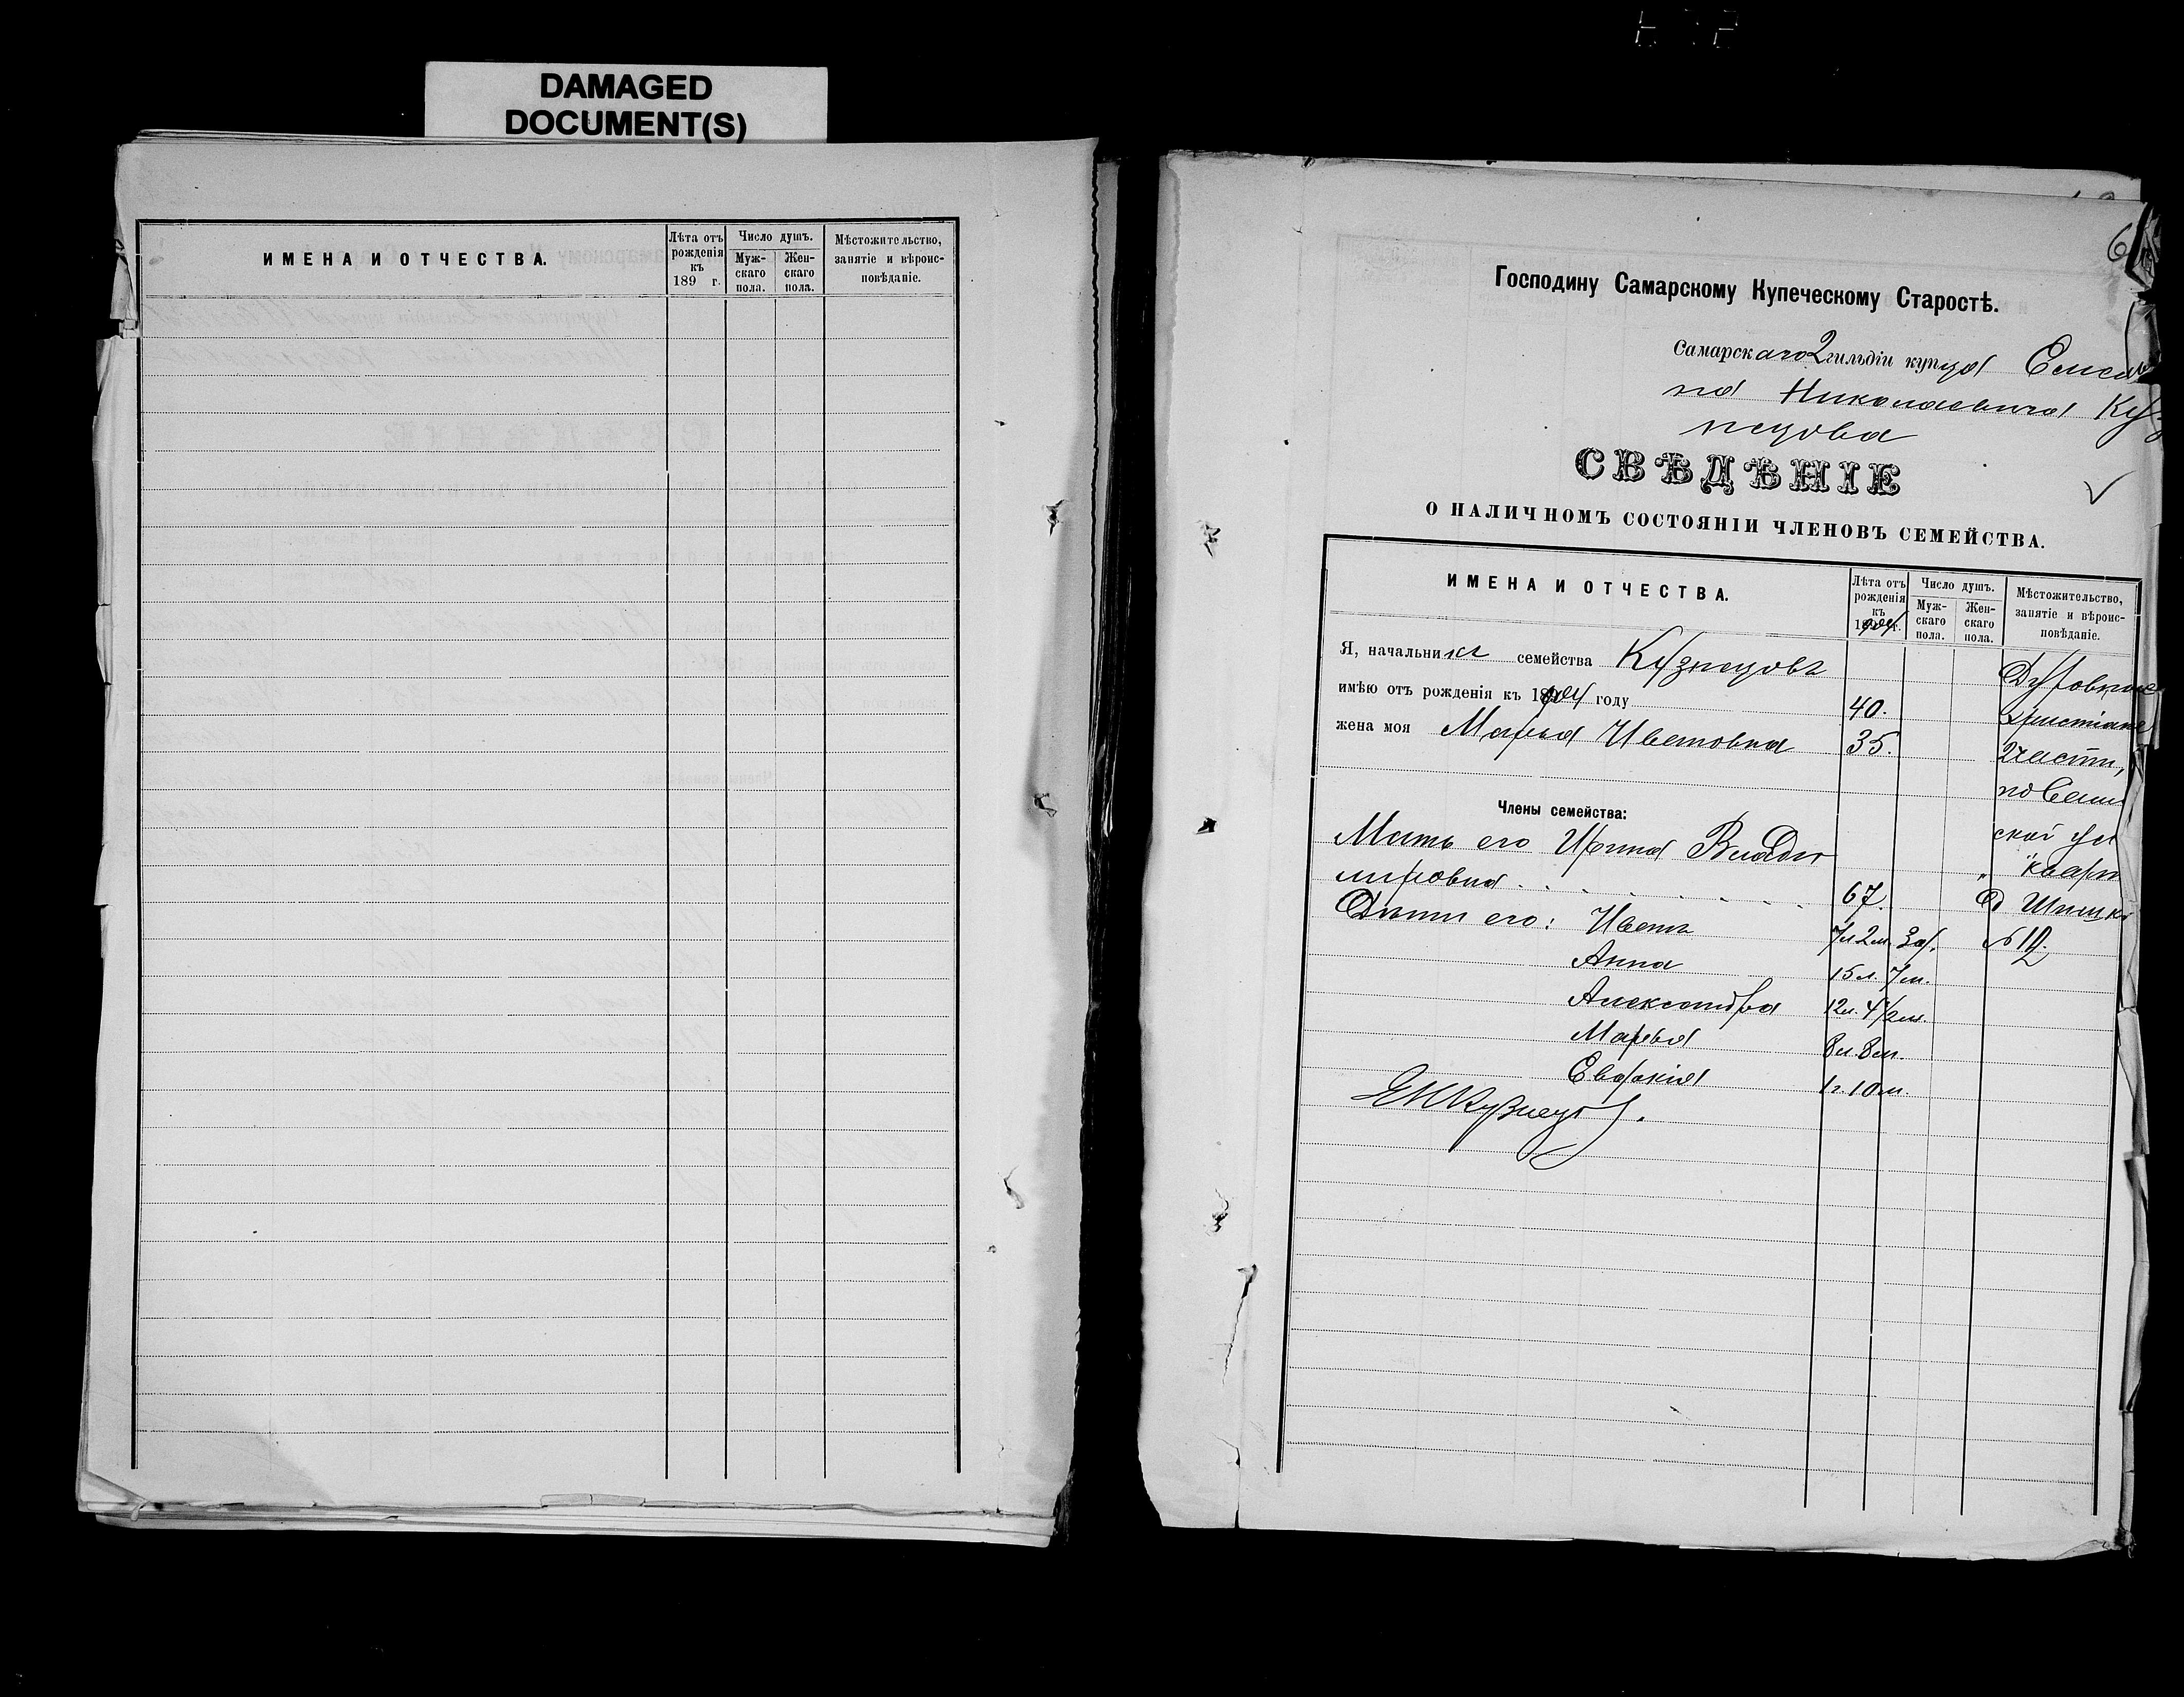 DAMAGED
DOCUMENT(S)
ИМЕНА И ОТЧЕСТВА.
Лѣта отъ рожденія къ 189 г.
Число душъ.
Мужскаго пола.
Женскаго пола.
Мѣстожительство, занятіе и вѣроисповѣданіе.
Господину Самарскому Купеческому Старостѣ.
Самарскаго 2 гильдіи купца
на Николаевича Куз
нецова
СВѢДѢНІЕ
О НАЛИЧНОМЪ СОСТОЯНІИ ЧЛЕНОВЪ СЕМЕЙСТВА.
ИМЕНА И ОТЧЕСТВА.
Лѣта отъ рожденія къ 1904 г.
Число душъ.
Мужскаго пола.
Женскаго пола.
Мѣстожительство, занятіе и вѣроисповѣданіе.
Я, начальникъ семейства Кузнецовъ
имѣю отъ рожденія къ 1904 году 40.
жена моя Марья Ивановна 35. 2 части,
Члены семейства:
Мать его Ирина Влади
мировна 67.
Дѣти его: Иванъ 7 л. 2 м. № 12.
Анна 15 л. 7 м.
Александра 12 л. 4 1/2 м.
Марья 8 л. 8 м.
Евдокія 1 г. 10 м.
ЕНКузнецов.